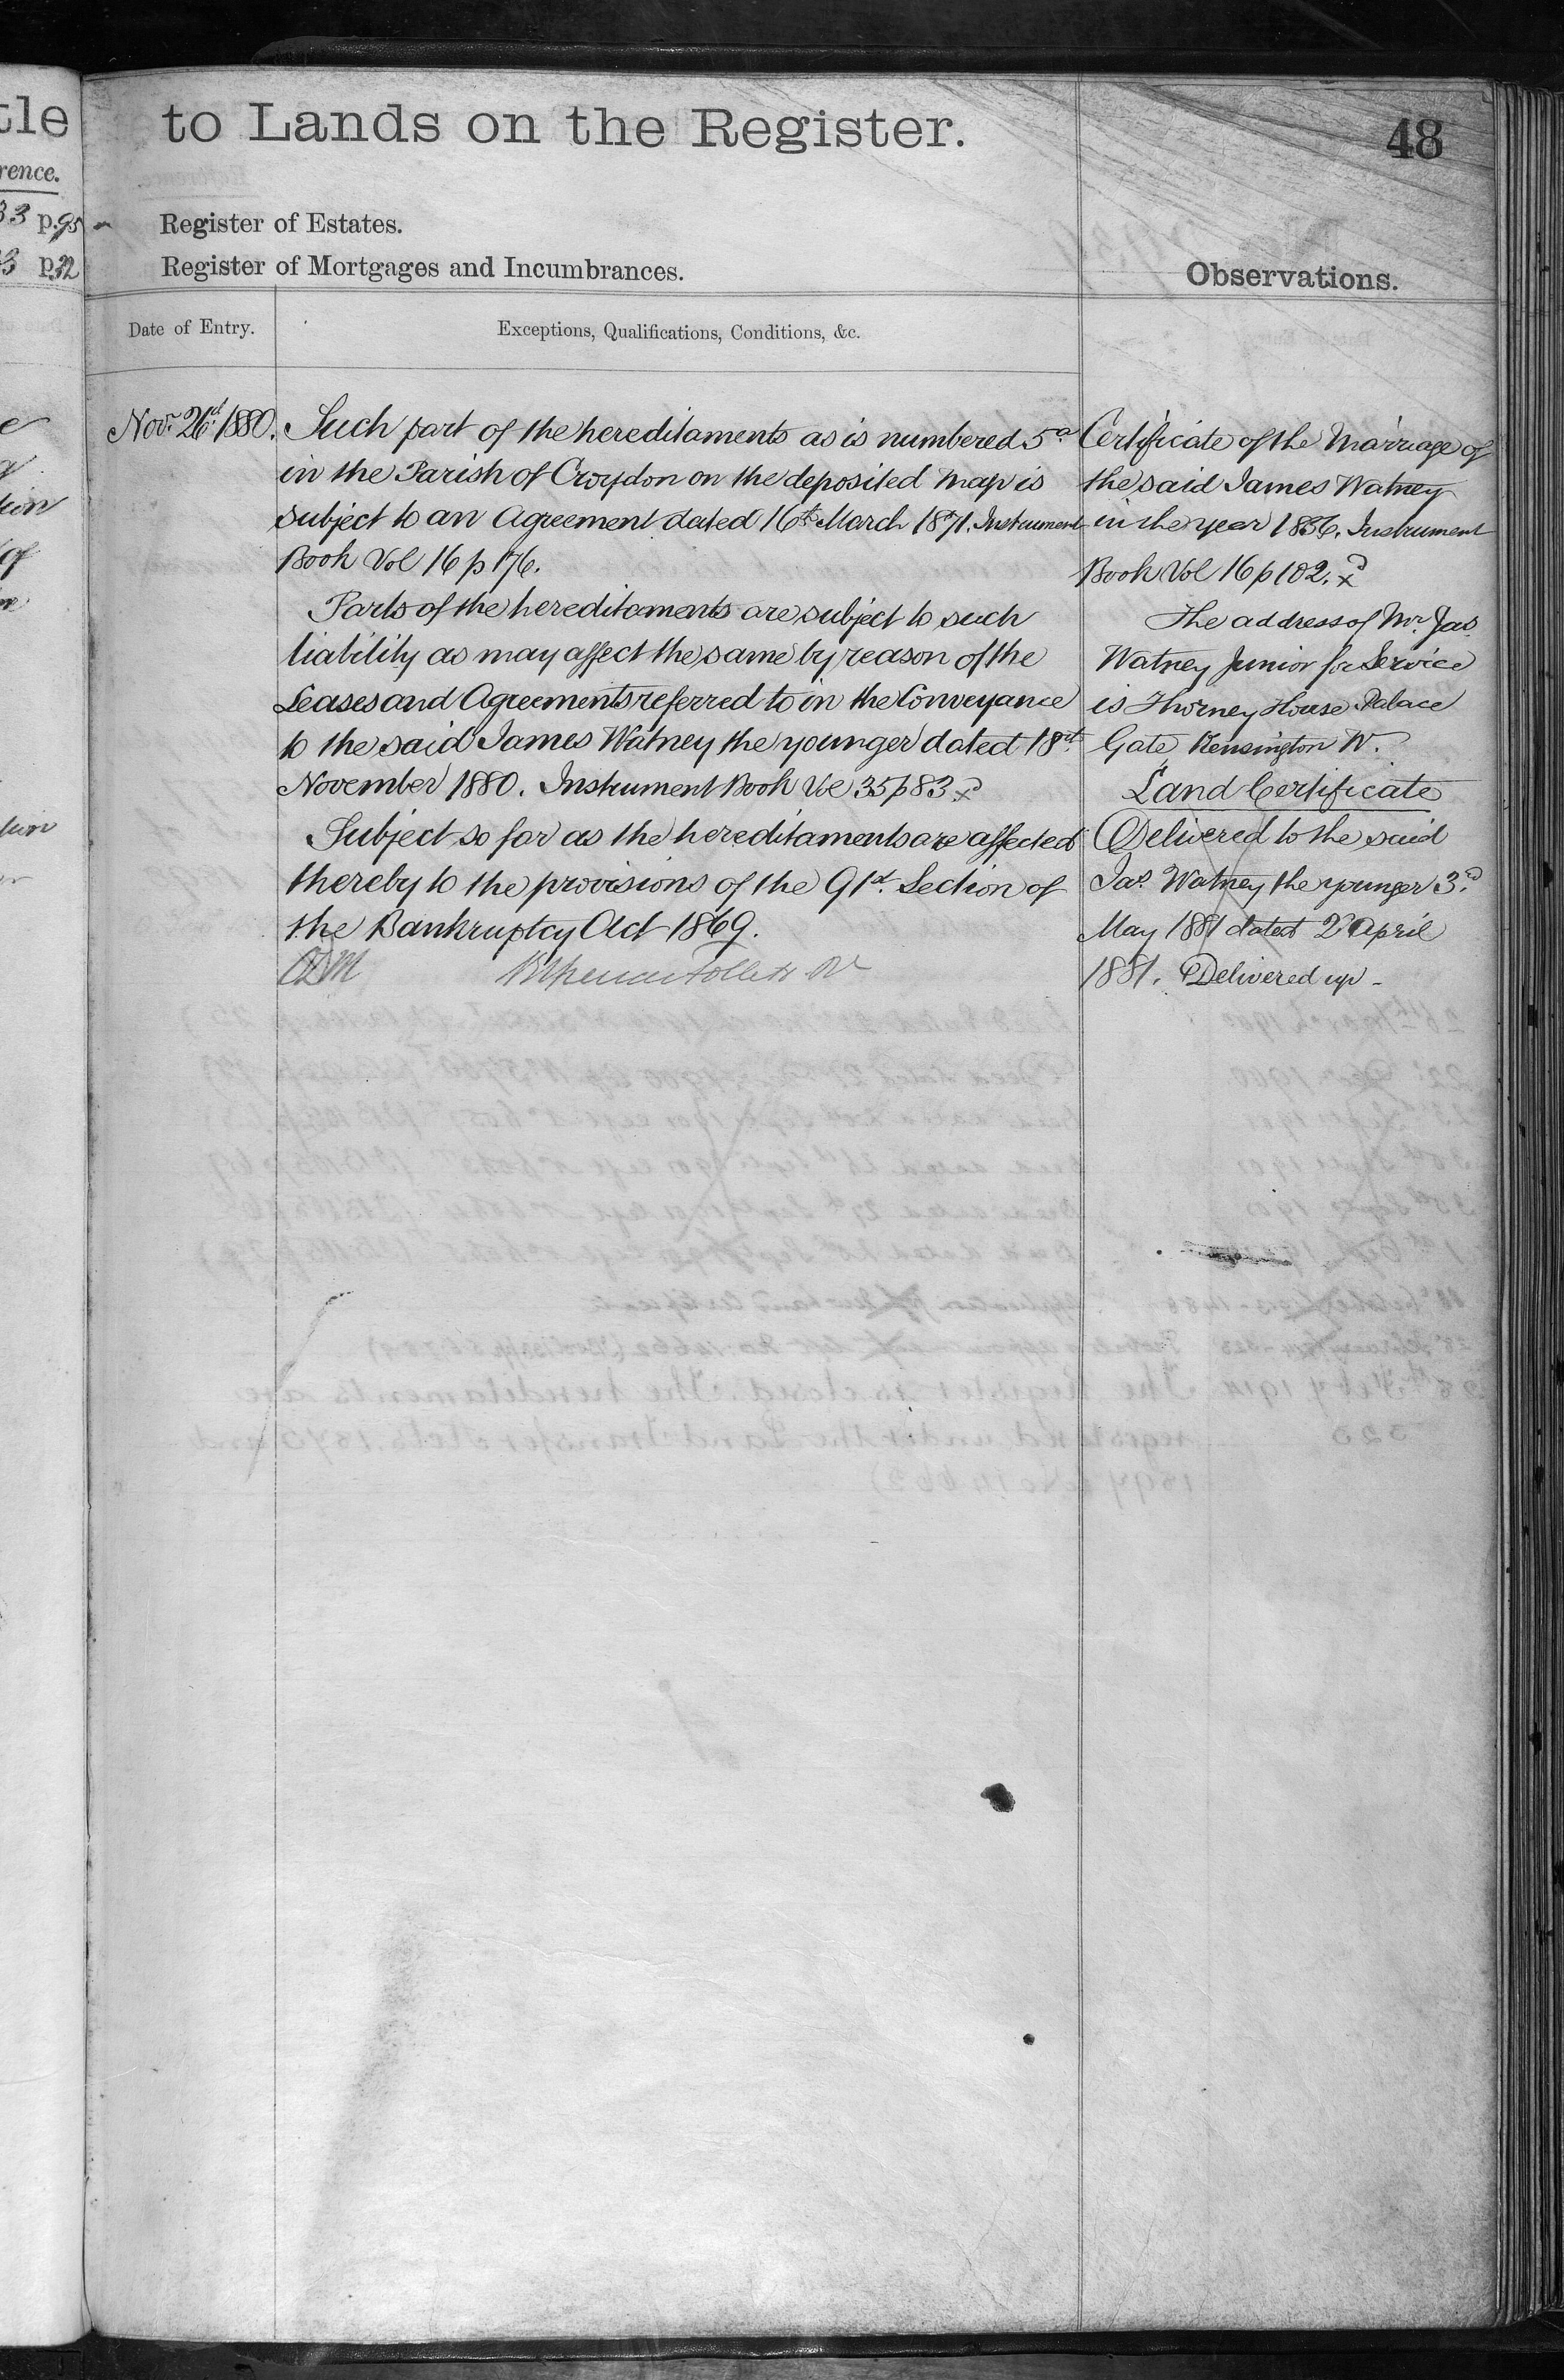 to Lands on the Register.
48
Register of Estates.
Register of Mortgages and Incumbrances.
Observations.
Date of Entry.
Exceptions, Qualifications, Conditions, &c.
Nov.r 26 1880.
Such part of the hereditaments as is numbered 5a
in the Parish of Croydon on the deposited Map is
subject to an Agreement dated 16th March 1871. Instrument
Book Vol 16 p 176.
Parts of the hereditaments are subject to such
liability as may affect the same by reason of the
Leases and Agreements referred to in the Conveyance
to the said James Watney the younger dated 18
November 1880. Instrument Book Vol 35 p 83
Subject so far as the hereditaments are affected
thereby to the provisions of the 91st. Section of
the Bankruptcy Act 1869.
Certificate of the Marriage of
the said James Watney
in the year 1856. Instrument
Book Vol 16 p 102.
The address of Mr. Jas
Watney Junior for Service
is Thorney House Palace
Gate Kensington W.
Land Certificate
Delivered to the said
Jas. Watney the younger 3rd
May 1881 dated 2d April
1881. Delivered up -
tle
rence.
33 p.95
3 p.32